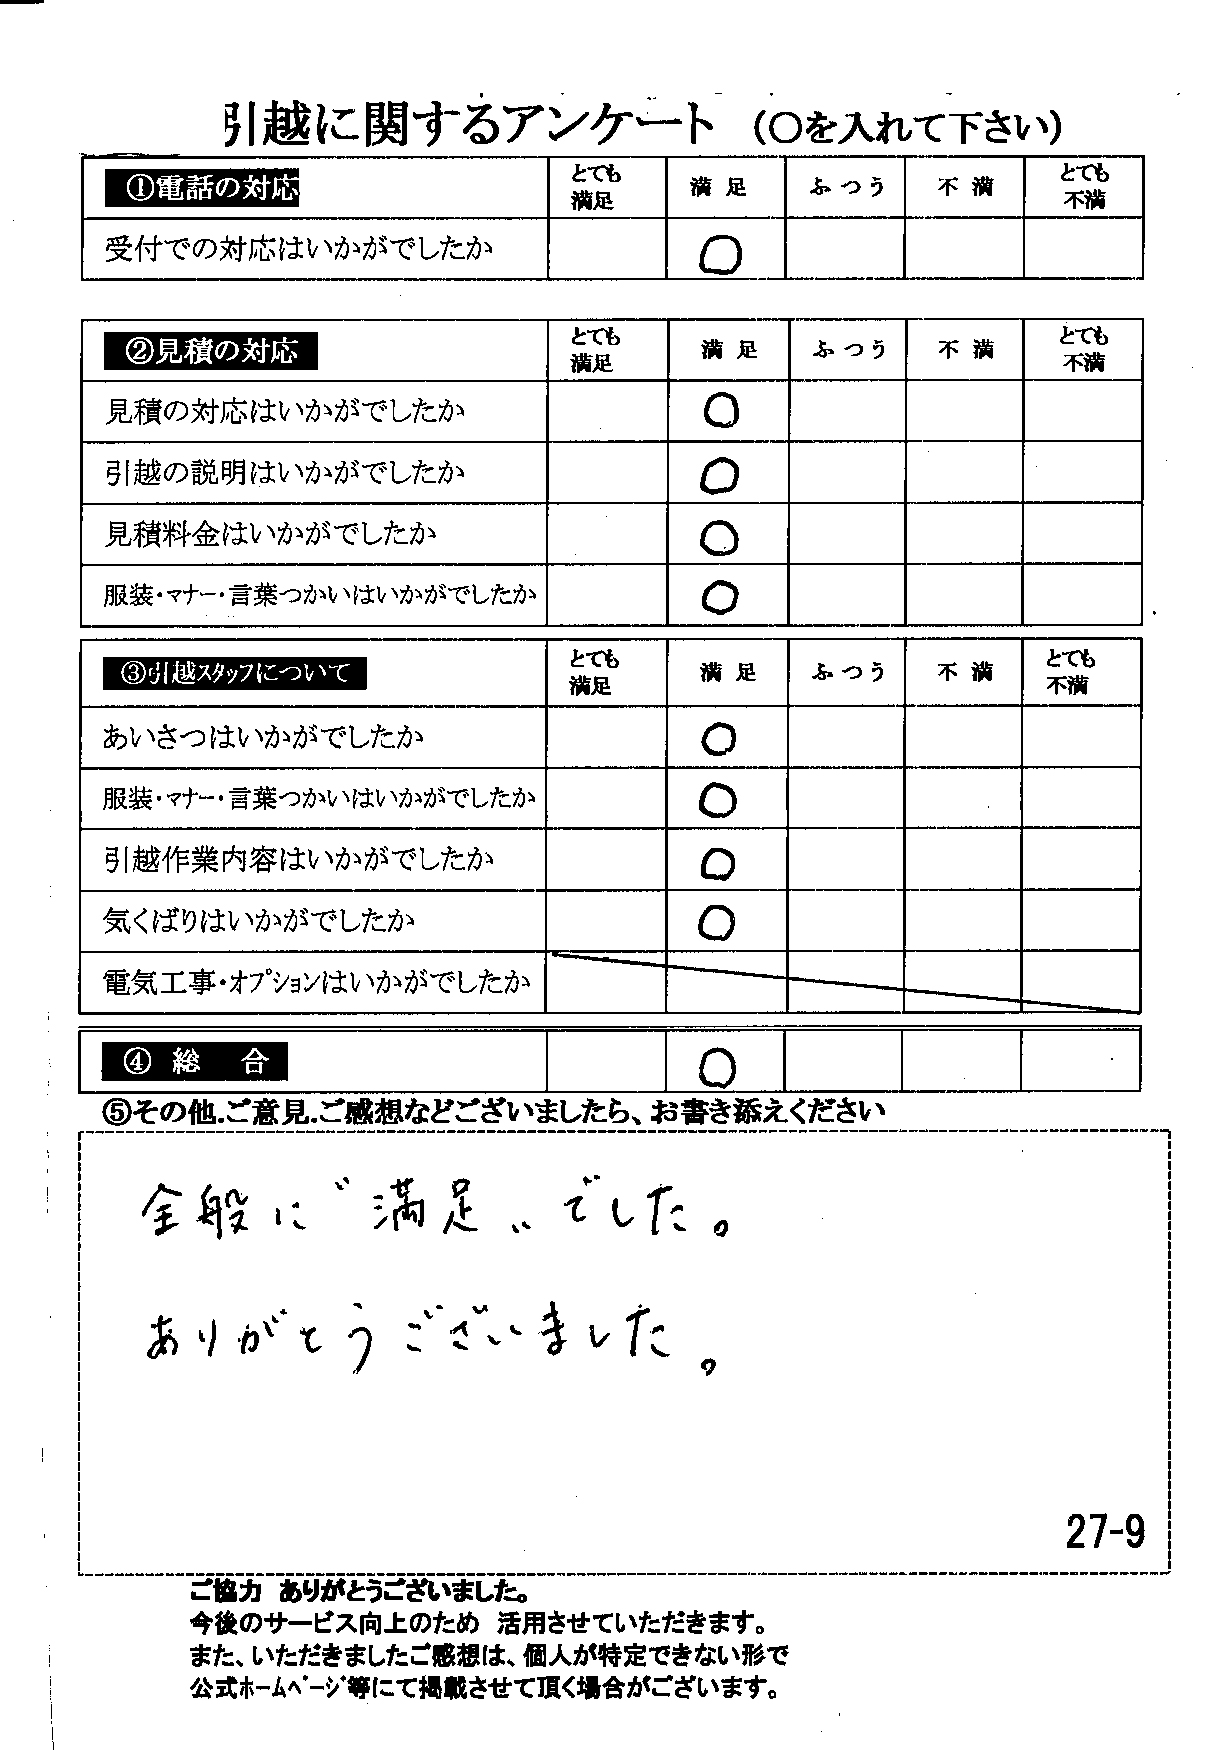 引越に関するアンケート （○を入れて下さい）
①電話の対応 とても満足 満足 ふつう 不満 とても不満
受付での対応はいかがでしたか ○
②見積の対応 とても満足 満足 ふつう 不満 とても不満
見積の対応はいかがでしたか ○
引越の説明はいかがでしたか ○
見積料金はいかがでしたか ○
服装・マナー・言葉つかいはいかがでしたか ○
③引越スタッフについて とても満足 満足 ふつう 不満 とても不満
あいさつはいかがでしたか ○
服装・マナー・言葉つかいはいかがでしたか ○
引越作業内容はいかがでしたか ○
気くばりはいかがでしたか ○
電気工事・オプションはいかがでしたか
④ 総 合 ○
⑤その他.ご意見.ご感想などございましたら、お書き添えください
全般に〝満足〟でした。
ありがとうございました。
27-9
ご協力 ありがとうございました。
今後のサービス向上のため 活用させていただきます。
また、いただきましたご感想は、個人が特定できない形で
公式ホームページ等にて掲載させて頂く場合がございます。